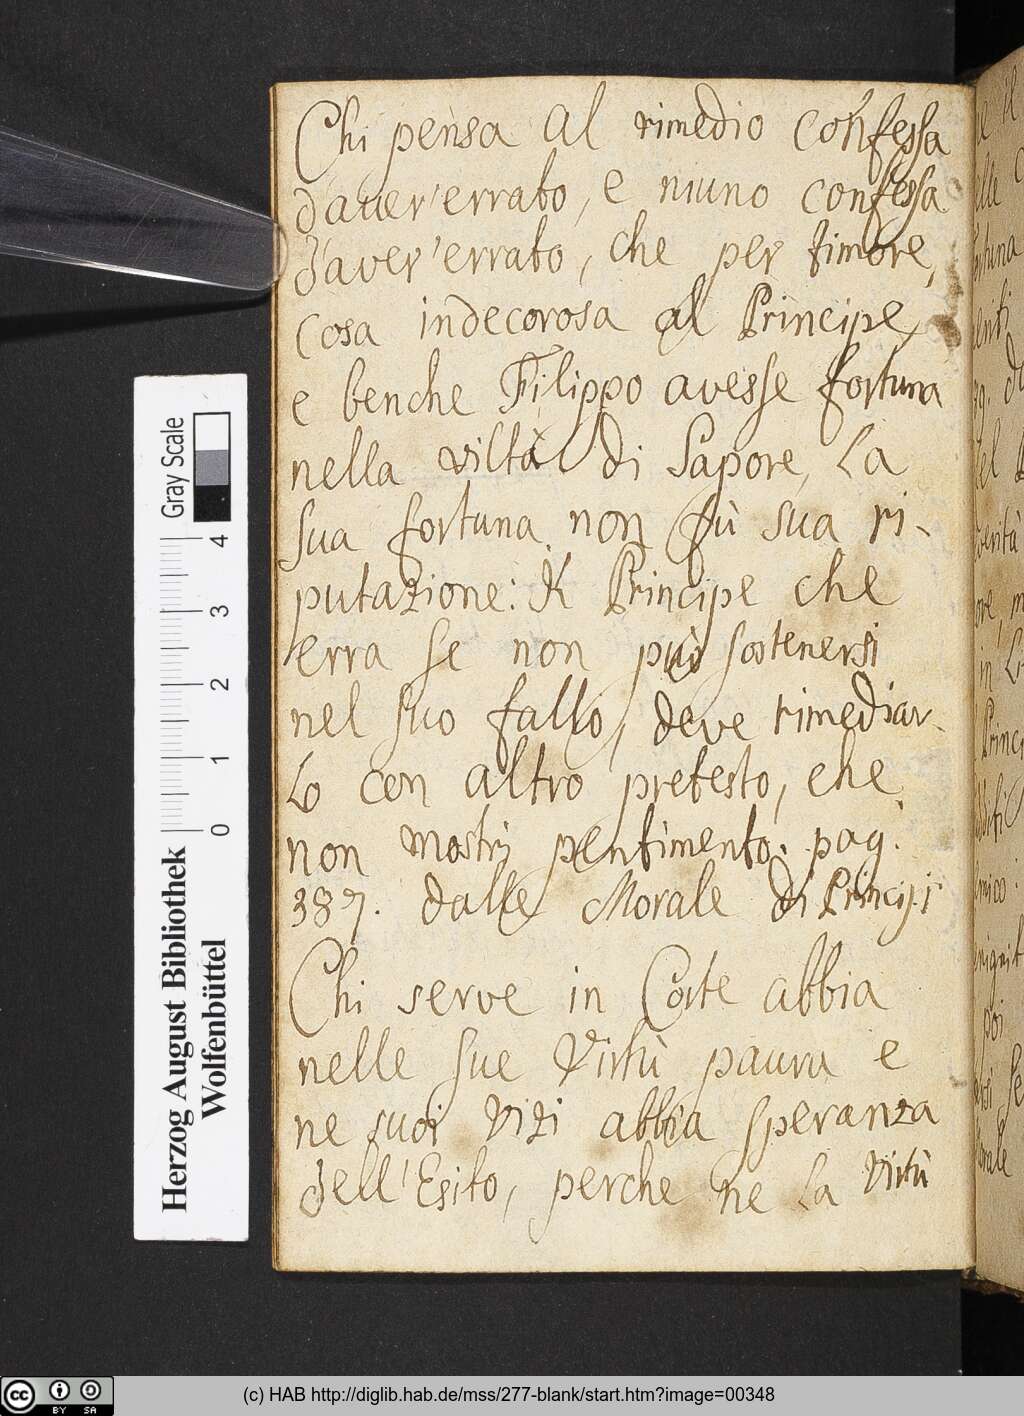 Chi pensa al rimedio confessa
d'aver'errato, e niuno confessa
d'aver'errato, che per timore,
cosa indecorosa al Principe,
e benche Filippo avesse fortuna
nella viltà di Sapore, la
sua fortuna non fù sua ri-
putazione: Il Principe che
erra se non può sostenersi
nel suo fallo, deve rimediar-
lo con altro pretesto, che
non mostri pentimento. pag.
387. dalle Morale di Principi
Chi serve in Corte abbia
nelle sue Virtù paura e
ne suoi Vizi abbia speranza
dell'Esito, perche ne la Virtù
Gray Scale
4
3
2
1
0
Herzog August Bibliothek
Wolfenbüttel
(c) HAB http://diglib.hab.de/mss/277-blank/start.htm?image=00348
cc BY SA